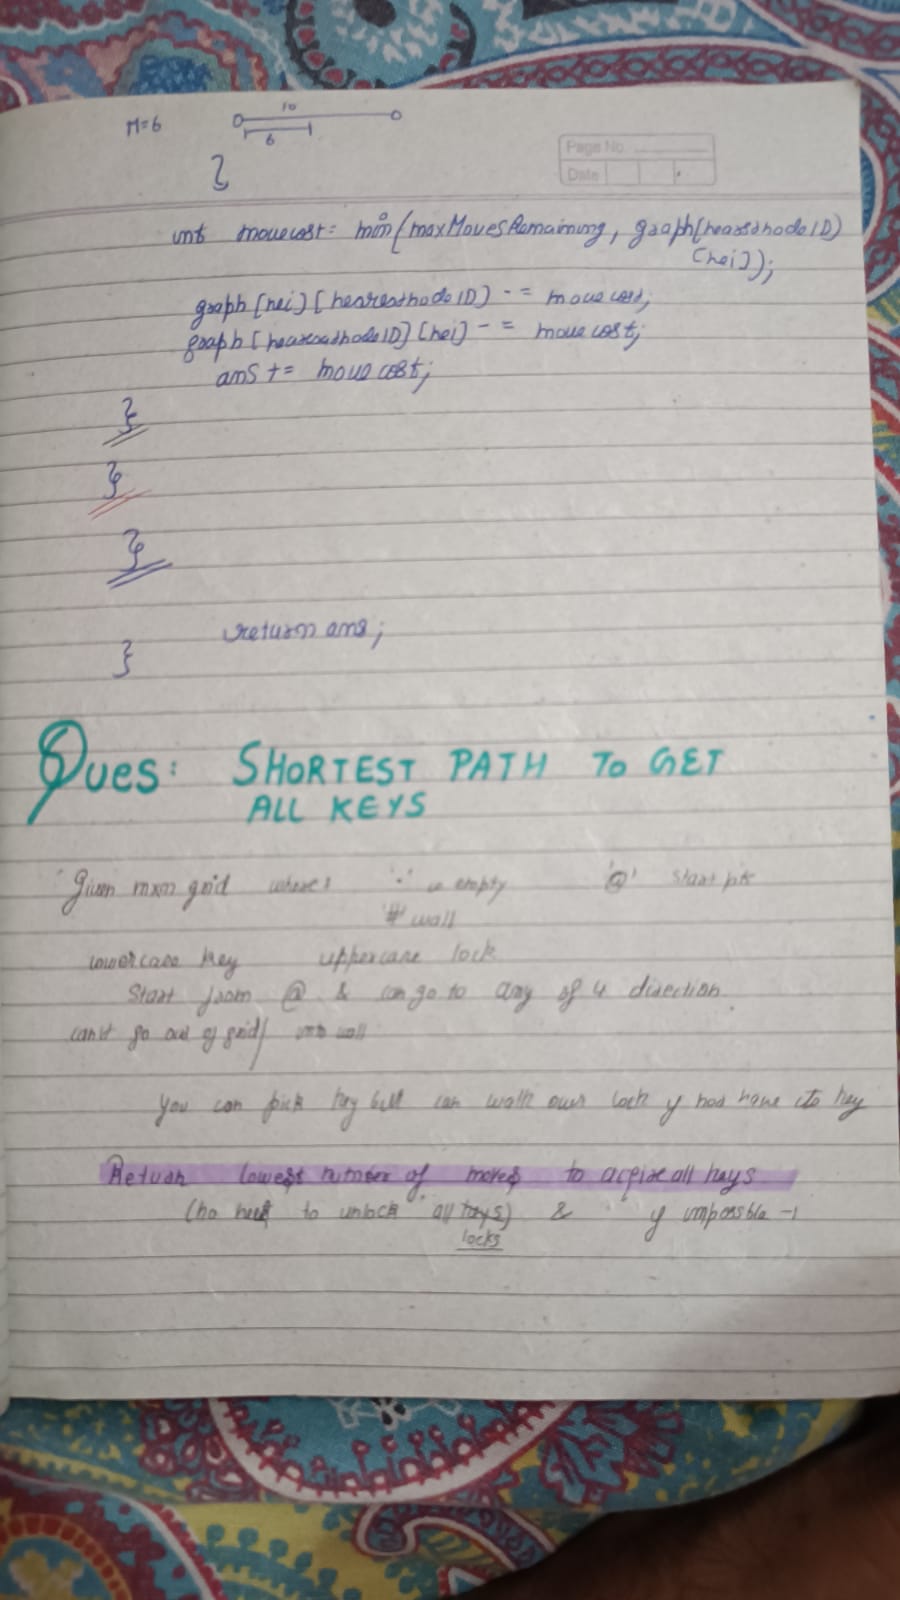 M=6
10
6
}
Page No.
Date
int movecost = min(maxMovesRemaining, graph[nearestnodeID]
[nei]);
graph[nei][nearestnodeID] -= movecost;
graph[nearestnodeID][nei] -= movecost;
ans += movecost;
}
}
}
return ans;
}
Ques: SHORTEST PATH TO GET
ALL KEYS
Given mxn grid where '.' is empty '@' start pt
'#' wall
lowercase key uppercase lock
Start from @ & can go to any of 4 direction
can't go out of grid/ into wall
You can pick key but can walk over lock if have its key
Return lowest number of moves to all keys
(no need to unlock all keys) & if impossible -1
locks